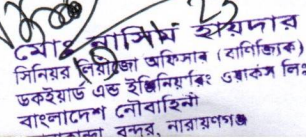 মোঃ নাসিম হায়দার
সিনিয়র অফিসার (বাণিজ্যিক)
ডকইয়ার্ড এন্ড ইঞ্জিনিয়ারিং ওয়ার্কস লিঃ
বাংলাদেশ নৌবাহিনী
বন্দর, নারায়ণগঞ্জ